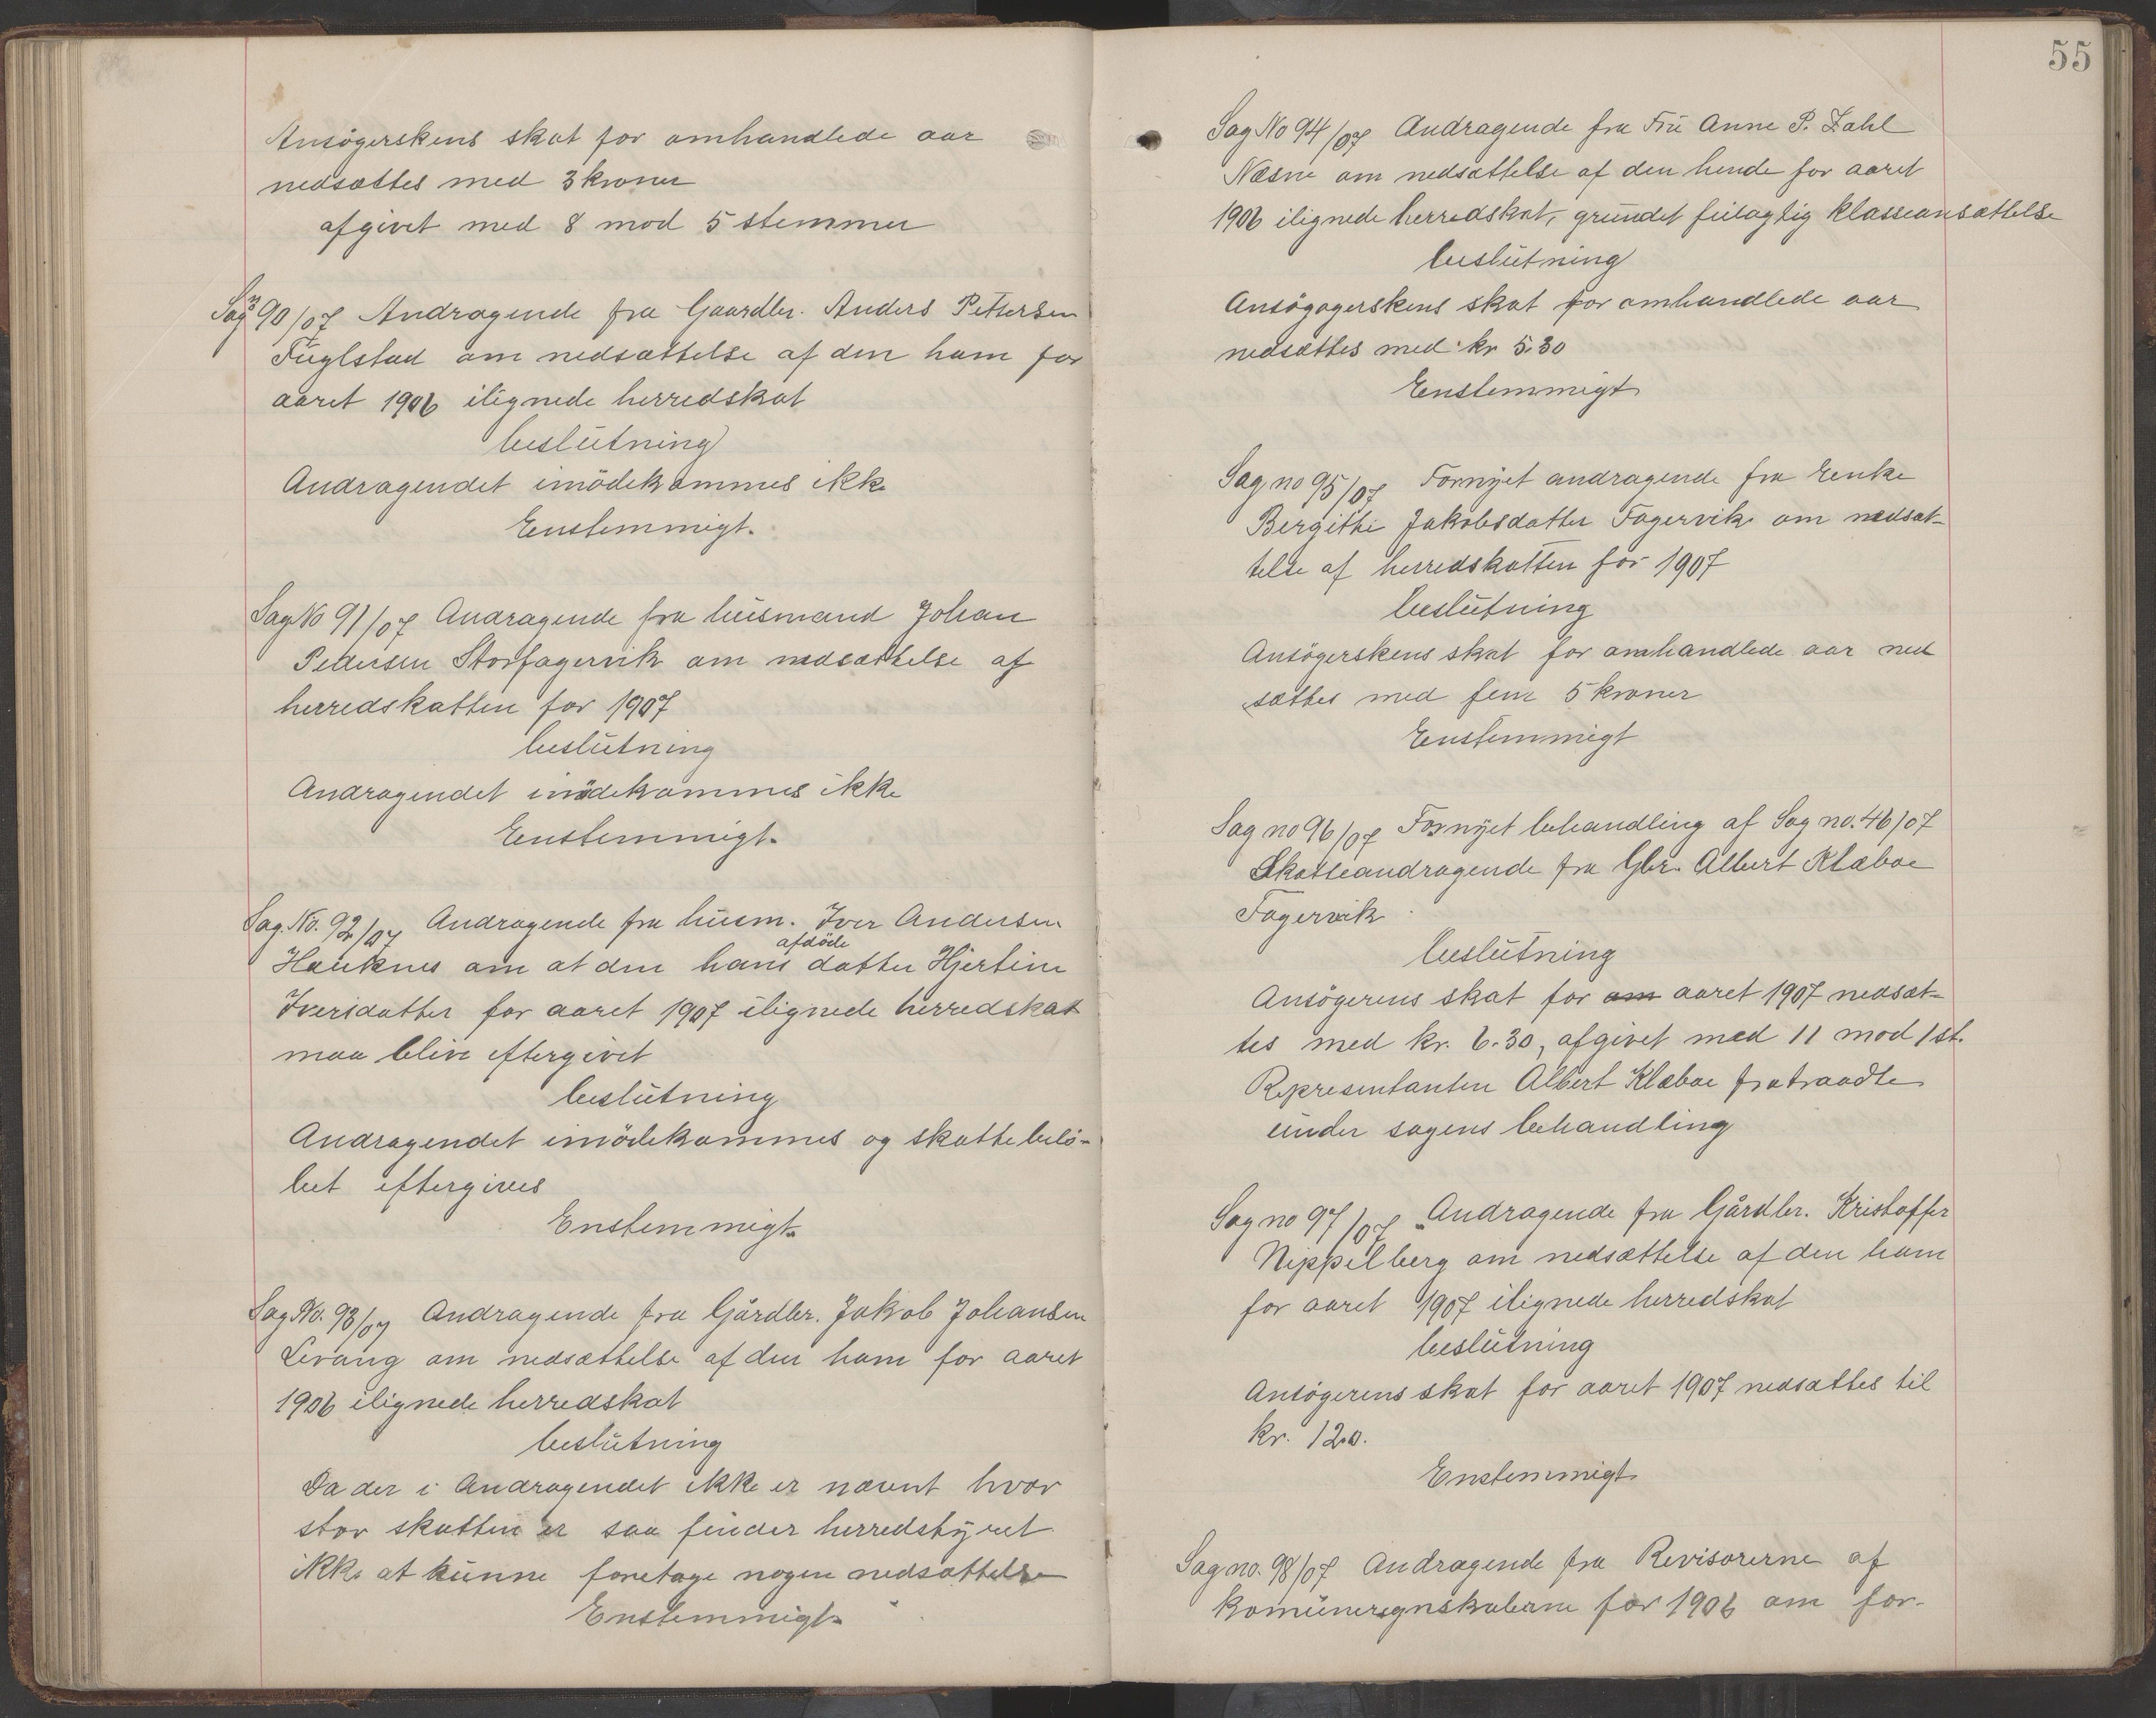 Ansögerskens skat for omhandlede aar
nedsættes med 3 kroner
afgivet med 8 mod 5 stemmer
Sag no 90/07 Andragende fra Gaardbr. Anders Pettersen
Fuglstad om nedsættelse af den ham for
aaret 1906 ilignede herredskat
beslutning
Andragendet imödekommes ikke
Enstemmigt.
Sag No 91/07 Andragende fra husmand Johan
Pedersen Storfagervik om nedsættelse af
herredskatten for 1907
beslutning
Andragendet imödekommes ikke
Enstemmigt.
Sag. No. 92/07 Andragende fra husm. Iver Andersen
Hauknes om at den hans afdöde datter Hjertine
Iversdatter for aaret 1907 ilignede herredskat
maa blive eftergivet
beslutning
Andragendet imödekommes og skattebelö-
bet eftergives
Enstemmigt.
Sag No. 93/07 Andragende fra Gårdbr. Jakob Johansen
Levang om nedsættelse af den ham for aaret
1906 ilignede herredskat
beslutning
Da der i Andragendet ikke er nævnt hvor
stor skatten er saa finder herredstyret
ikke at kunne foretage nogen nedsættelse
Enstemmigt.
55
Sag No 94/07 Andragende fra Fru Anne P. Zahl
Næsne om nedsættelse af den hende for aaret
1906 ilignede herredskat, grundet feilagtig klasseansættelse
beslutning
Ansögogerskens skat for omhandlede aar
nedsættes med kr 5.30
Enstemmigt
Sag no 95/07 Fornyet andragende fra Enke
Bergithe Jakobsdatter Fagervik om nedsæt-
telse af herredskatten for 1907
beslutning
Ansögerskens skat for omhandlede aar ned
sættes med fem 5 kroner
Enstemmigt
Sag no 96/07 Fornyet behandling af Sag no. 46/07
Skatteandragende fra Gbr. Albert Klæboe
Fagervik
beslutning
Ansögerens skat for om aaret 1907 nedsæt-
tes med kr. 6.30, afgivet med 11 mod 1 st.
Representanten Albert Klæboe fratraadte
under sagens behandling
Sag no 97/07 Andragende fra Gårdbr. Kristoffer
Nippelberg om nedsættelse af den ham
for aaret 1907 ilignede herredskat
beslutning
Ansögerens skat for aaret 1907 nedsættes til
kr. 12.0.
Enstemmigt
Sag no. 98/07 Andragende fra Revisorerne af
komuneregnskaberne for 1906 om for-